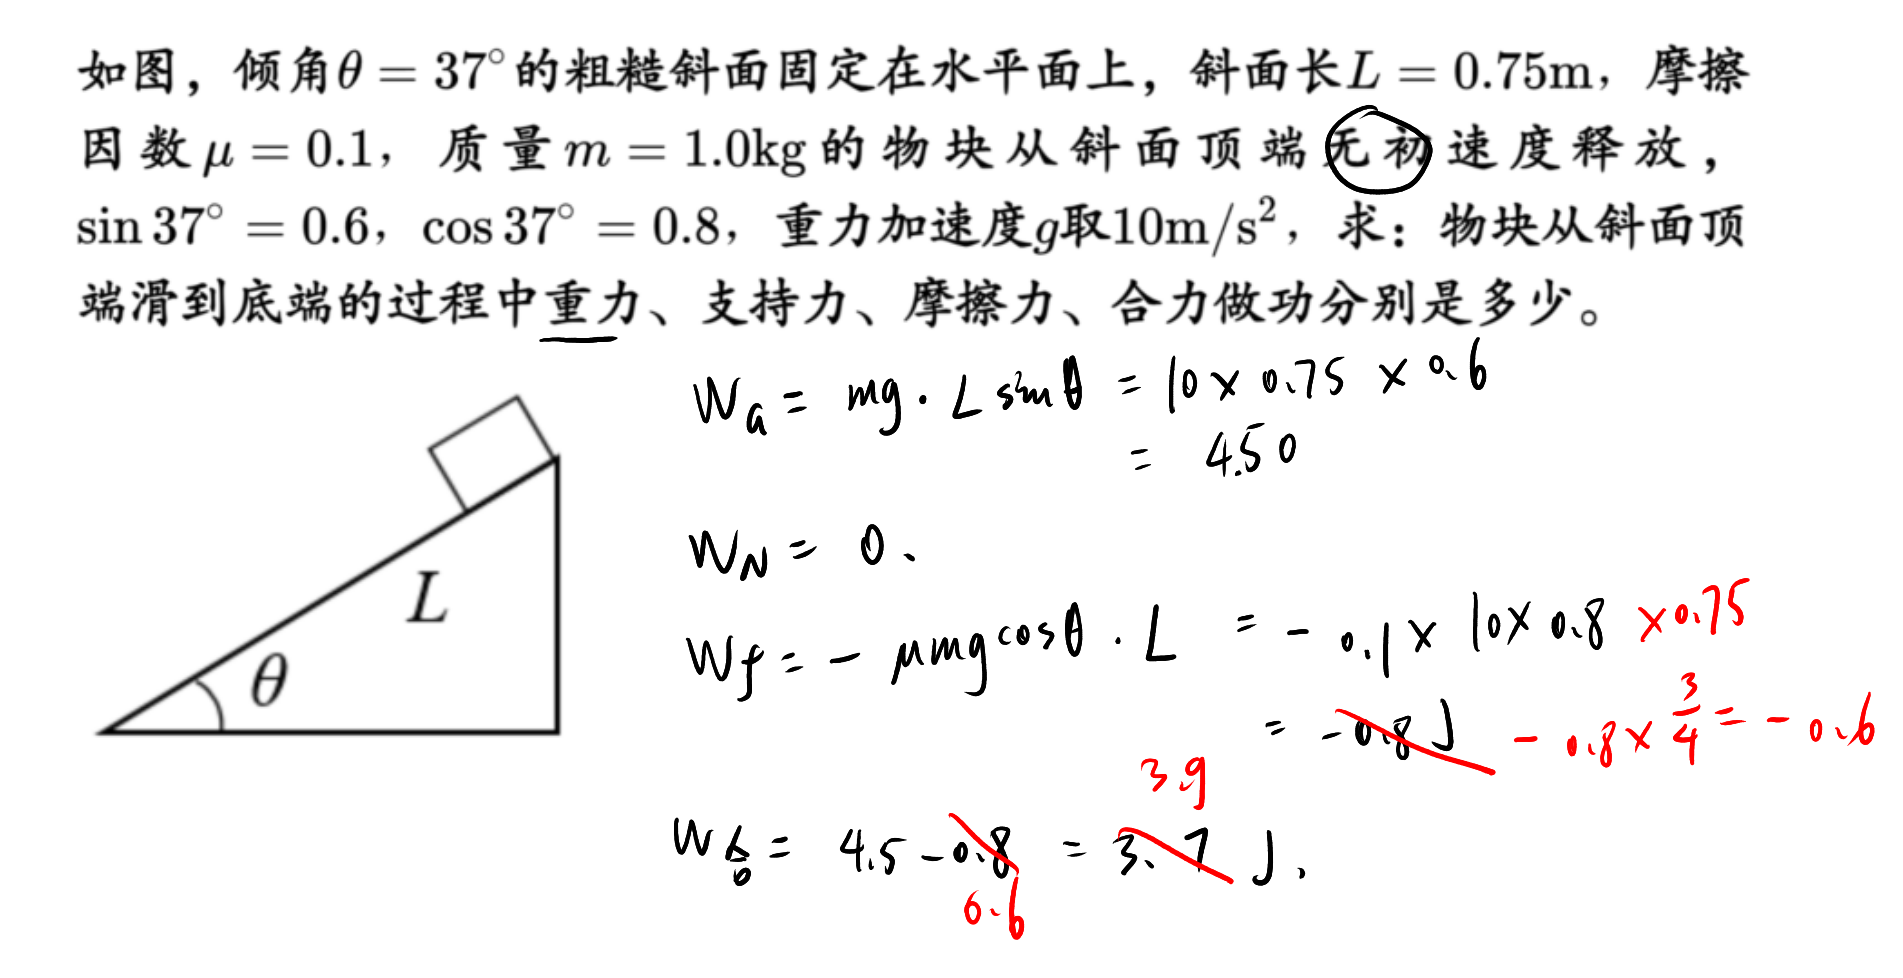 如图，倾角θ = 37°的粗糙斜面固定在水平面上，斜面长L = 0.75m，摩擦
因数μ = 0.1，质量m = 1.0kg的物块从斜面顶端无初速度释放，
sin 37° = 0.6，cos 37° = 0.8，重力加速度g取10m/s²，求：物块从斜面顶
端滑到底端的过程中重力、支持力、摩擦力、合力做功分别是多少。
W_G = mg · L sinθ = 10 × 0.75 × 0.6
= 4.50
W_N = 0 .
W_f = - μmg cosθ · L = - 0.1 × 10 × 0.8 × 0.75
= -0.8 J - 0.8 × 3/4 = - 0.6
3.9
W_合 = 4.5 - 0.8 = 3.7 J .
0.6
L
θ